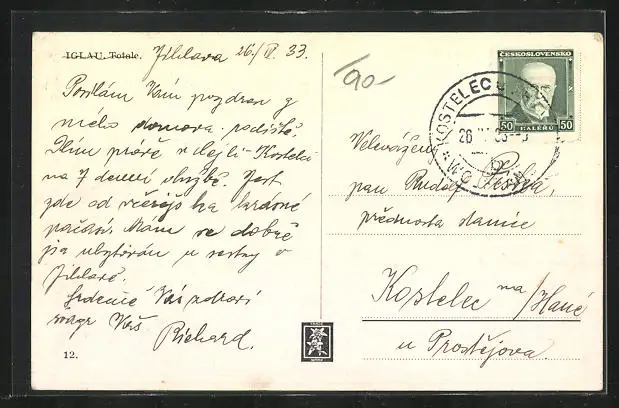 IGLAU. Totale. Jihlava 26/IV. 33.
Posílám Vám pozdrav z
mého domova - rodiště.
Dlím právě v
na 7 denní službě. Jest
zde od včerejška krásné
počasí. Mám se dobře
ubytován u sestry v
Jihlavě.
Srdečně Vás zdraví
Váš
Richard.
12.
90-
ČESKOSLOVENSKO
50 HALÉŘŮ 50
KOSTELEC
26
Velevážený
pan Rudolf
přednosta stanice
Kostelec na/Hané
u Prostějova.